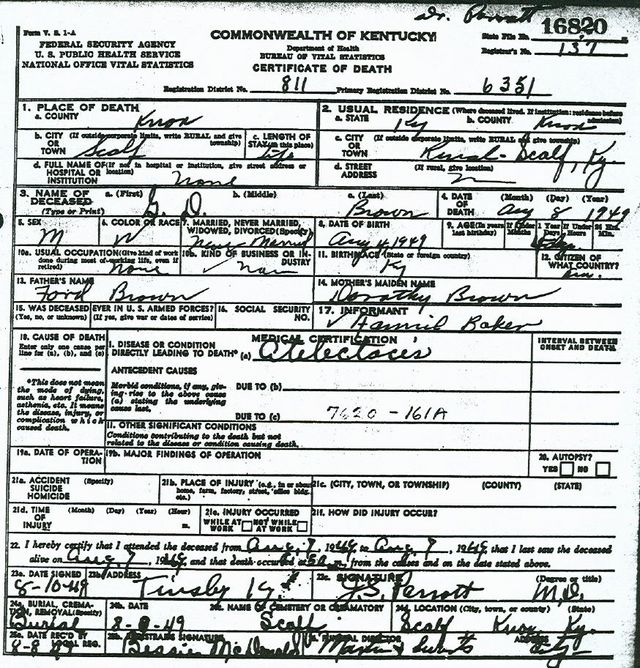 Dr. Parrott
16820
Form V. S. 1-A
COMMONWEALTH OF KENTUCKY
State File No.
FEDERAL SECURITY AGENCY
Department of Health
Registrar's No. 137
U. S. PUBLIC HEALTH SERVICE
BUREAU OF VITAL STATISTICS
NATIONAL OFFICE VITAL STATISTICS
CERTIFICATE OF DEATH
Registration District No. 811 Primary Registration District No. 6351
1. PLACE OF DEATH
a. COUNTY Knox
b. CITY (If outside corporate limits, write RURAL and give township) OR TOWN Scalf
c. LENGTH OF STAY (in this place) life
d. FULL NAME OF (If not in hospital or institution, give street address or location) HOSPITAL OR INSTITUTION None
2. USUAL RESIDENCE (Where deceased lived. If institution: residence before admission)
a. STATE Ky b. COUNTY Knox
c. CITY (If outside corporate limits, write RURAL and give township) OR TOWN Rural-Scalf, Ky.
d. STREET ADDRESS (If rural, give location)
3. NAME OF DECEASED (Type or Print) a. (First) G. D. b. (Middle) c. (Last) Brown
4. DATE OF DEATH (Month) (Day) (Year) Aug 8 1949
5. SEX M
6. COLOR OR RACE W
7. MARRIED, NEVER MARRIED, WIDOWED, DIVORCED (Specify) Never Married
8. DATE OF BIRTH Aug 4 1949
9. AGE (In years last birthday) If Under 1 Year Months Days If Under 24 Hrs. Hours Min.
10a. USUAL OCCUPATION (Give kind of work done during most of working life, even if retired) None
10b. KIND OF BUSINESS OR INDUSTRY
11. BIRTHPLACE (State or foreign country) Ky
12. CITIZEN OF WHAT COUNTRY?
13. FATHER'S NAME Ford Brown
14. MOTHER'S MAIDEN NAME Dorothy Brown
15. WAS DECEASED EVER IN U. S. ARMED FORCES? (Yes, no, or unknown) (If yes, give war or dates of service)
16. SOCIAL SECURITY NO.
17. INFORMANT Baker
18. CAUSE OF DEATH
Enter only one cause per line for (a), (b), and (c)
MEDICAL CERTIFICATION
INTERVAL BETWEEN ONSET AND DEATH
I. DISEASE OR CONDITION DIRECTLY LEADING TO DEATH* (a) Atelectaces
*This does not mean the mode of dying, such as heart failure, asthenia, etc. It means the disease, injury, or complication which caused death.
ANTECEDENT CAUSES
Morbid conditions, if any, giving rise to the above cause (a) stating the underlying cause last.
DUE TO (b)
DUE TO (c) 7620 -161A
II. OTHER SIGNIFICANT CONDITIONS
Conditions contributing to the death but not related to the disease or condition causing death.
19a. DATE OF OPERATION
19b. MAJOR FINDINGS OF OPERATION
20. AUTOPSY?
YES NO
21a. ACCIDENT SUICIDE HOMICIDE (Specify)
21b. PLACE OF INJURY (e.g., in or about home, farm, factory, street, office bldg. etc.)
21c. (CITY, TOWN, OR TOWNSHIP) (COUNTY) (STATE)
21d. TIME OF INJURY (Month) (Day) (Year) (Hour) m.
21e. INJURY OCCURRED WHILE AT WORK NOT WHILE AT WORK
21f. HOW DID INJURY OCCUR?
22. I hereby certify that I attended the deceased from Aug. 7, 1949, to Aug 7, 1949, that I last saw the deceased
alive on Aug 7, 1949, and that death occurred at m., from the causes and on the date stated above.
23a. DATE SIGNED 8-10-49
23b. ADDRESS Tinsley Ky
23c. SIGNATURE Parrott (Degree or title) M.D.
24a. BURIAL, CREMATION, REMOVAL (Specify) Burial
24b. DATE 8-8-49
24c. NAME OF CEMETERY OR CREMATORY Scalf
24d. LOCATION (City, town, or county) (State) Scalf Knox Ky.
25a. DATE REC'D BY LOCAL REG. 8-8
25b. REGISTRAR'S SIGNATURE Bessie McDonald
FUNERAL DIRECTOR ADDRESS